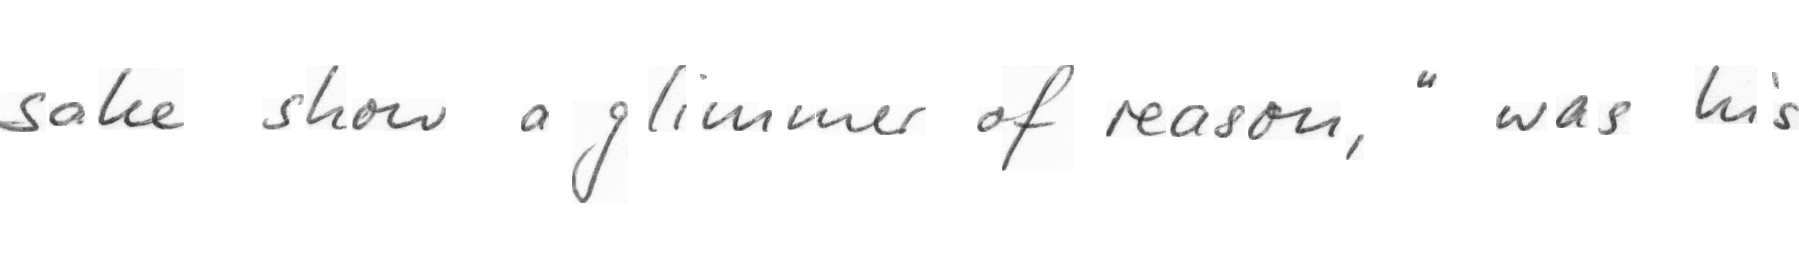 sake show a glimmer of reason," was his